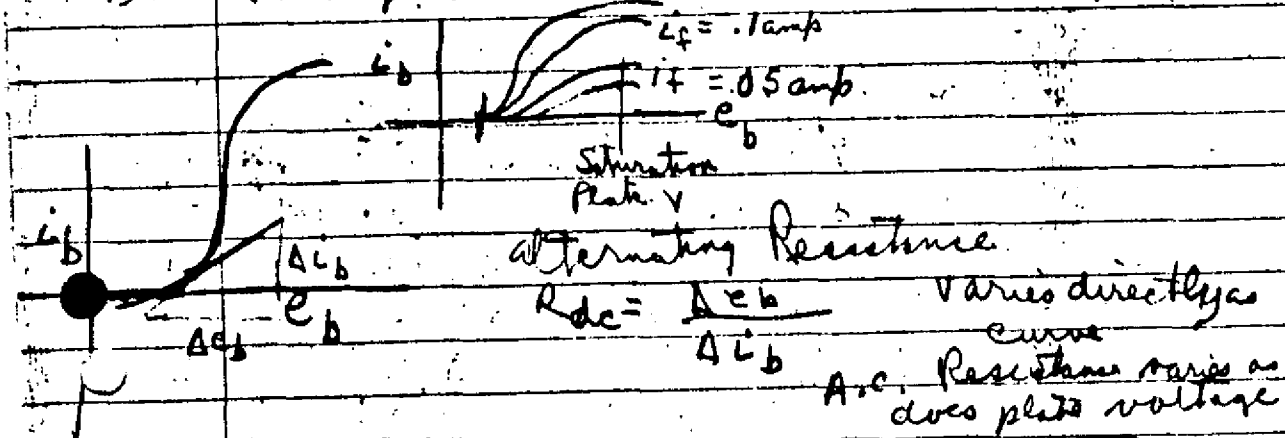 i_f = .1 amp
i_b
i_f = .05 amp.
e_b
Saturation
Plate V
i_b
Δi_b
e_b
Δe_b
alternating Resistance
R_dc = Δe_b / Δi_b
Varies directly as
curve
A.C. Resistance varies as
does plate voltage